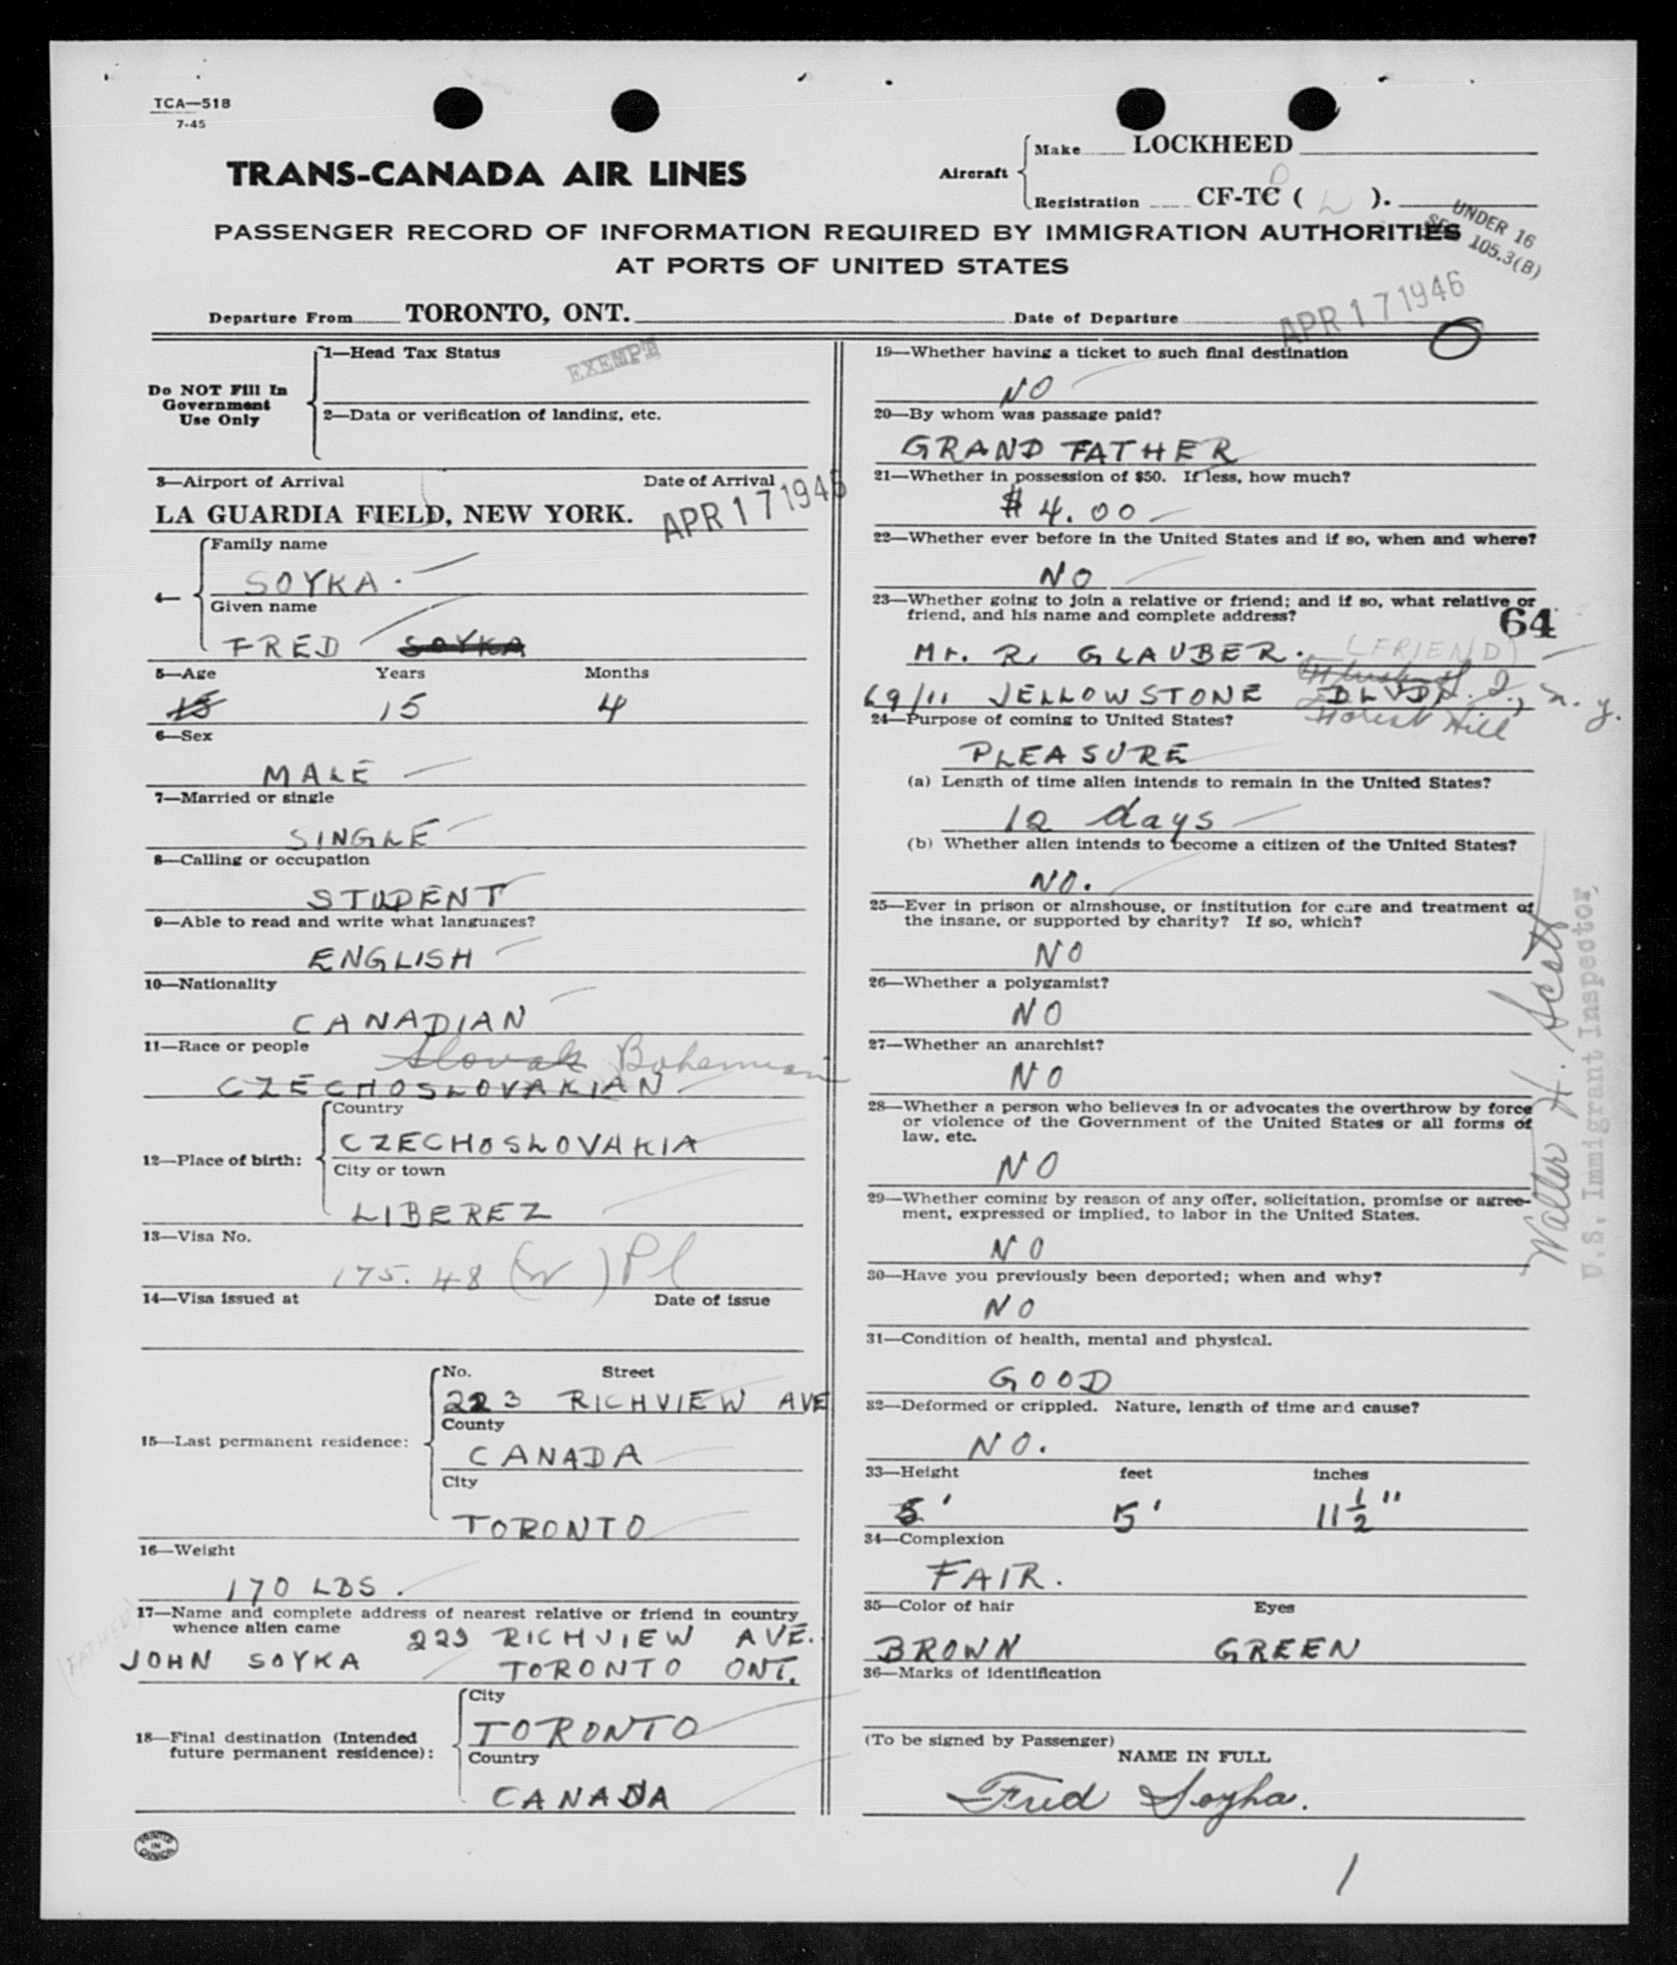 TCA—518
7-45
TRANS-CANADA AIR LINES
Aircraft
Make LOCKHEED
Registration CF-TC ( L ).
PASSENGER RECORD OF INFORMATION REQUIRED BY IMMIGRATION AUTHORITIES
AT PORTS OF UNITED STATES
UNDER 16
SEC 105.3(B)
Departure From TORONTO, ONT.
Date of Departure APR 17 1946
Do NOT Fill In
Government
Use Only
1—Head Tax Status EXEMPT
2—Data or verification of landing, etc.
3—Airport of Arrival Date of Arrival
LA GUARDIA FIELD, NEW YORK. APR 17 1946
4— Family name
SOYKA.
Given name
FRED SOYKA
5—Age Years Months
15 15 4
6—Sex
MALE
7—Married or single
SINGLE
8—Calling or occupation
STUDENT
9—Able to read and write what languages?
ENGLISH
10—Nationality
CANADIAN
11—Race or people Slovak Bohemian
CZECHOSLOVAKIAN
12—Place of birth:
Country
CZECHOSLOVAKIA
City or town
LIBEREZ
13—Visa No.
175.48 Pl
14—Visa issued at Date of issue
15—Last permanent residence:
No. Street
223 RICHVIEW AVE
County
CANADA
City
TORONTO
16—Weight
170 LBS.
17—Name and complete address of nearest relative or friend in country
whence alien came 223 RICHVIEW AVE.
(FATHER) JOHN SOYKA TORONTO ONT.
18—Final destination (Intended
future permanent residence):
City
TORONTO
Country
CANADA
PRINTED
IN
CANADA
19—Whether having a ticket to such final destination
NO
20—By whom was passage paid?
GRAND FATHER
21—Whether in possession of $50. If less, how much?
$ 4.00
22—Whether ever before in the United States and if so, when and where?
NO
23—Whether going to join a relative or friend; and if so, what relative or
friend, and his name and complete address?
64
Mr. R. GLAUBER. (FRIEND)
69/11 JELLOWSTONE BLVD, L. I., n. y.
Forest Hill
24—Purpose of coming to United States?
PLEASURE
(a) Length of time alien intends to remain in the United States?
12 days
(b) Whether alien intends to become a citizen of the United States?
NO.
25—Ever in prison or almshouse, or institution for care and treatment of
the insane, or supported by charity? If so, which?
NO
26—Whether a polygamist?
NO
27—Whether an anarchist?
NO
28—Whether a person who believes in or advocates the overthrow by force
or violence of the Government of the United States or all forms of
law, etc.
NO
29—Whether coming by reason of any offer, solicitation, promise or agree-
ment, expressed or implied, to labor in the United States.
NO
30—Have you previously been deported; when and why?
NO
31—Condition of health, mental and physical.
GOOD
32—Deformed or crippled. Nature, length of time and cause?
NO.
33—Height feet inches
5' 5' 11 1/2"
34—Complexion
FAIR.
35—Color of hair Eyes
BROWN GREEN
36—Marks of identification
(To be signed by Passenger)
NAME IN FULL
Fred Soyka.
1
Walter H. Scott
U.S. Immigrant Inspector,